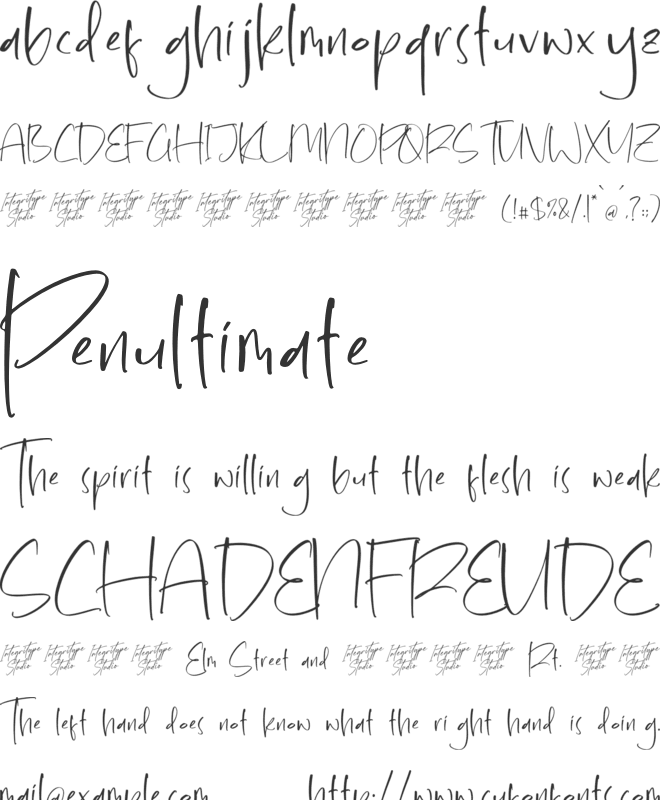 abcdef ghijklmnopqrstuvwx yz
ABCDEFGHIJKLMNOPQRSTUVWXYZ
Integritype Studio Integritype Studio Integritype Studio Integritype Studio Integritype Studio Integritype Studio Integritype Studio Integritype Studio Integritype Studio Integritype Studio (!#$%&/.|*`@´,?:;)
Penultimate
The spirit is willin g but the flesh is weak
SCHADENFREUDE
Integritype Studio Integritype Studio Integritype Studio Integritype Studio Elm Street and Integritype Studio Integritype Studio Integritype Studio Integritype Studio Rt. Integritype Studio Integritype Studio
The left hand does not know what the ri ght hand is doin g.
mail@example.com http://www.cufonfonts.com